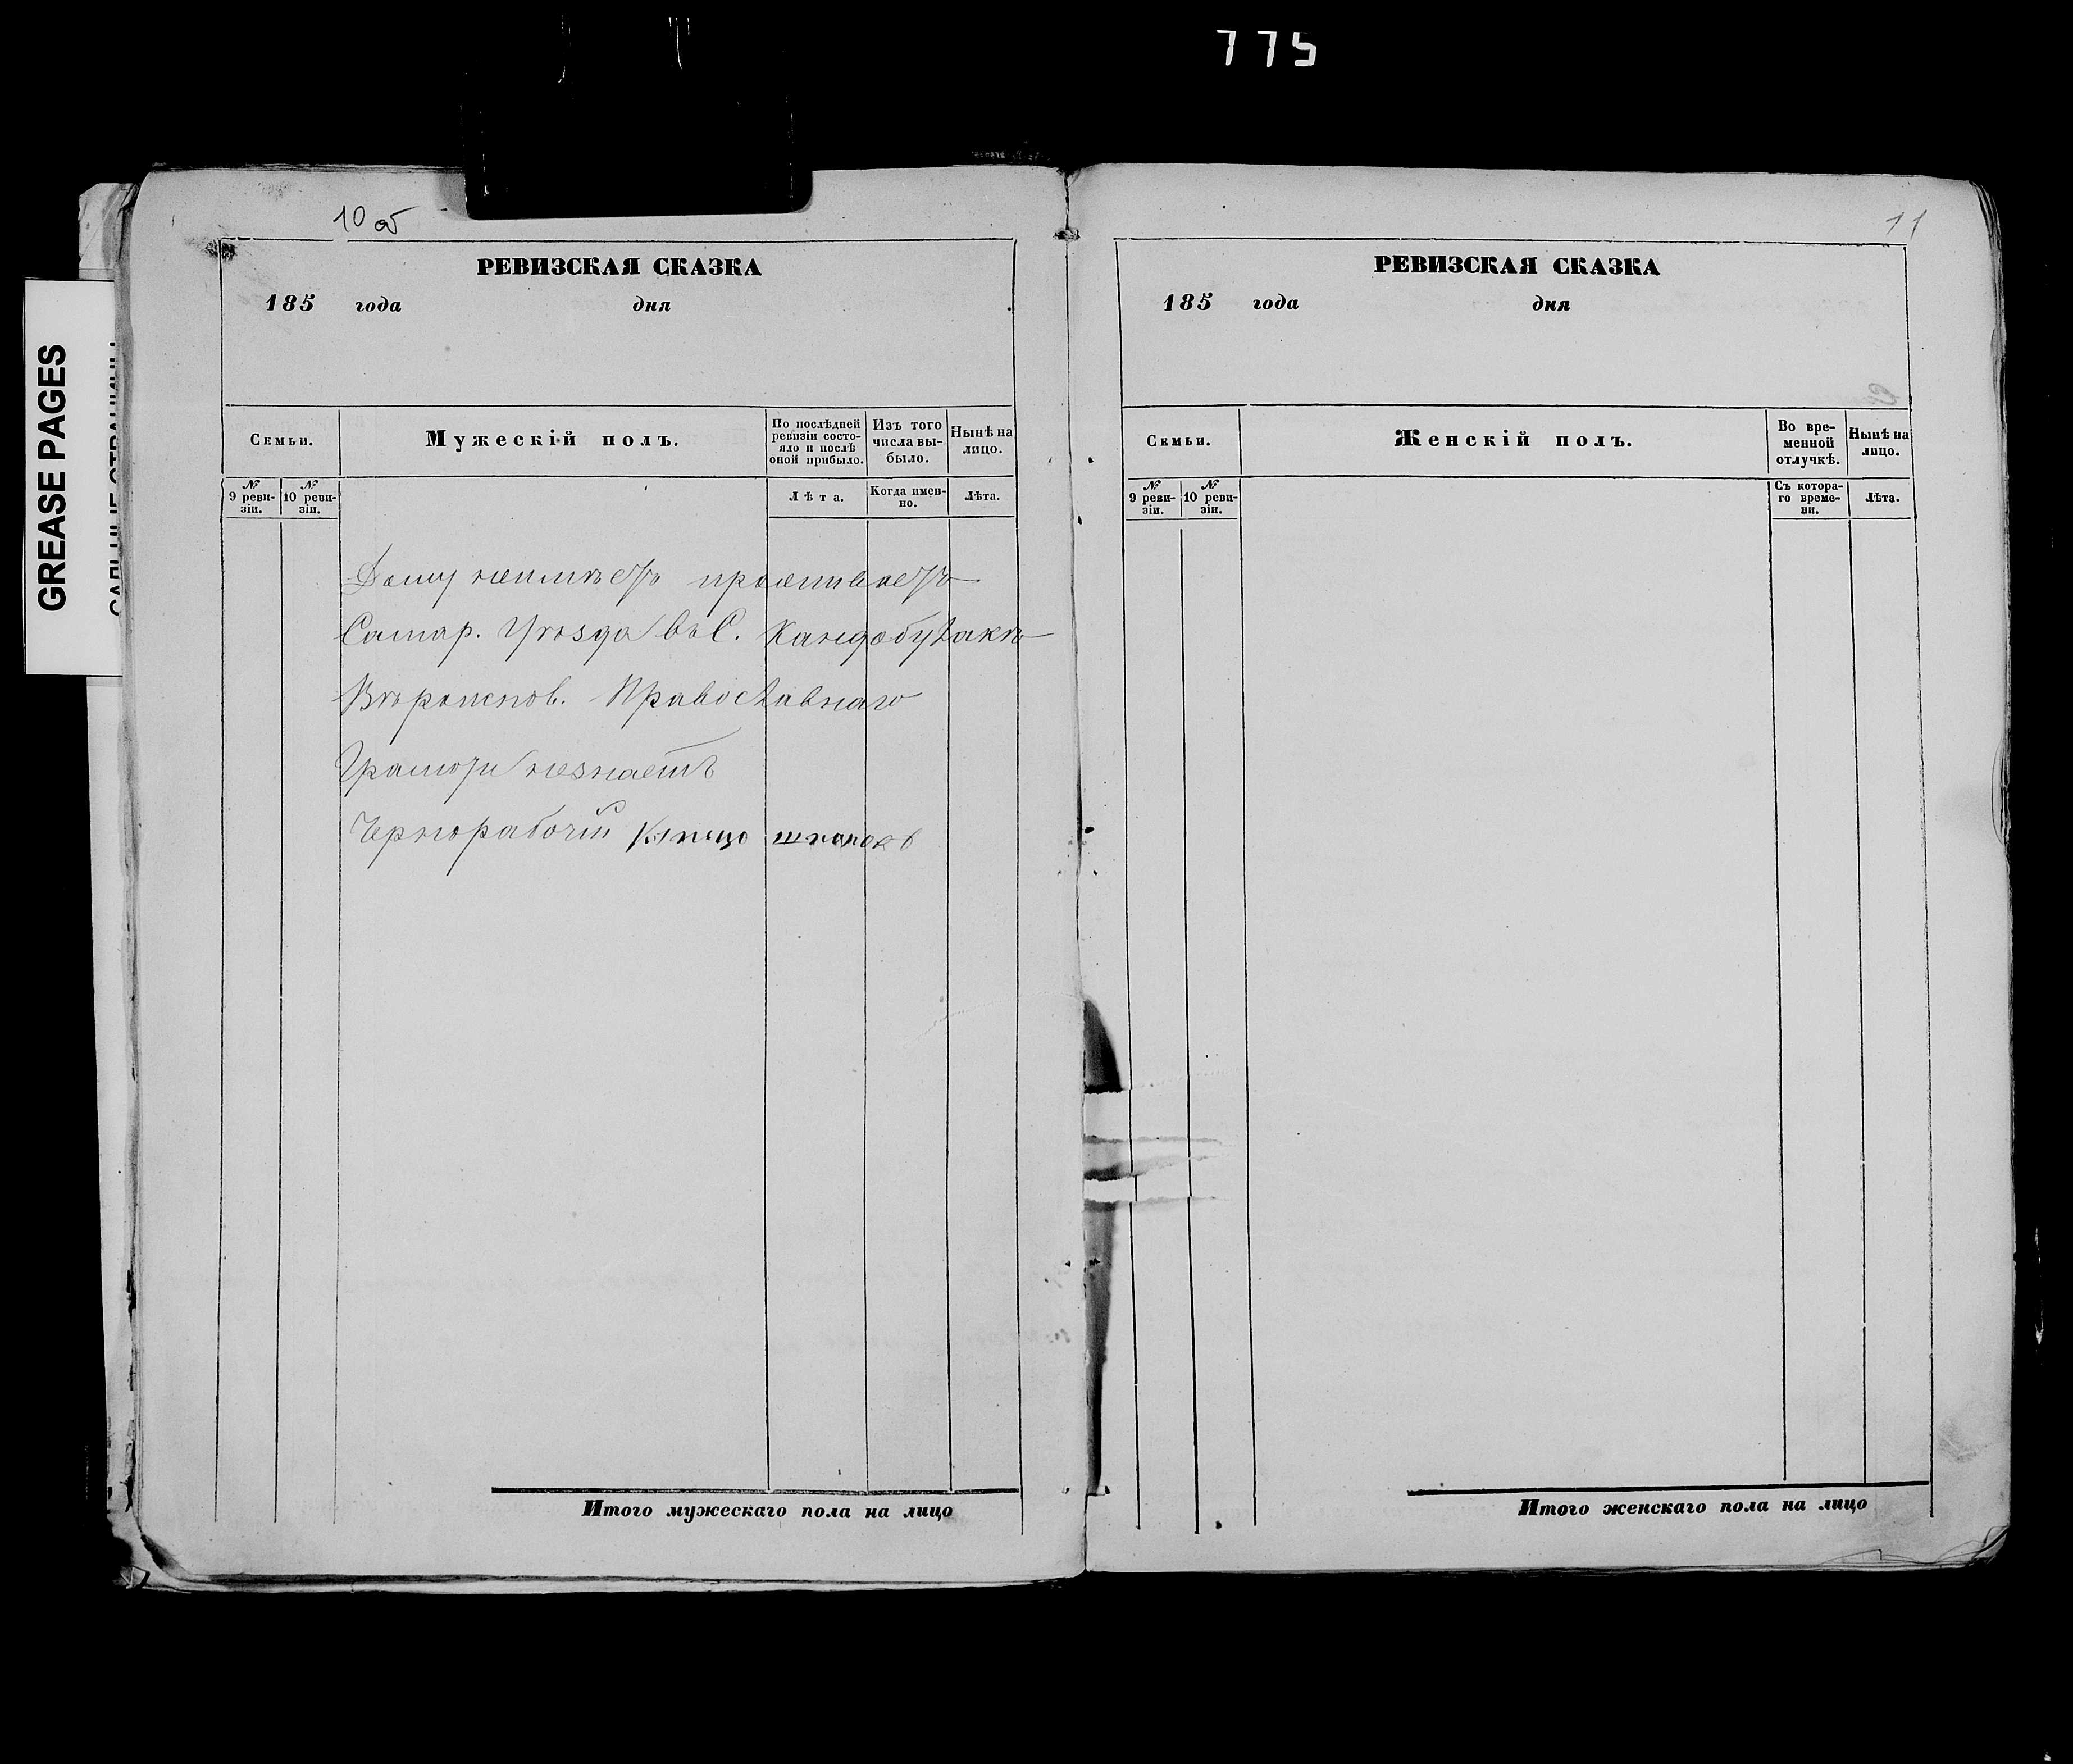 775
10 об
РЕВИЗСКАЯ СКАЗКА
185 года дня
Семьи.
Мужескій полъ.
По послѣдней ревизіи состояло и послѣ оной прибыло.
Изъ того числа выбыло.
Нынѣ на лицо.
№ 9 ревизіи.
№ 10 ревизіи.
Лѣта.
Когда именно.
Лѣта.
Дому неимѣетъ проживаетъ
Самар. Уѣзда въ С. Кандабулакѣ
Вѣроиспов. Православнаго
Грамоти незнаетъ
Чернорабочій
Итого мужескаго пола на лицо
11
РЕВИЗСКАЯ СКАЗКА
185 года дня
Семьи.
Женскій полъ.
Во временной отлучкѣ.
Нынѣ на лицо.
№ 9 ревизіи.
№ 10 ревизіи.
Съ котораго времени.
Лѣта.
Итого женскаго пола на лицо
GREASE PAGES